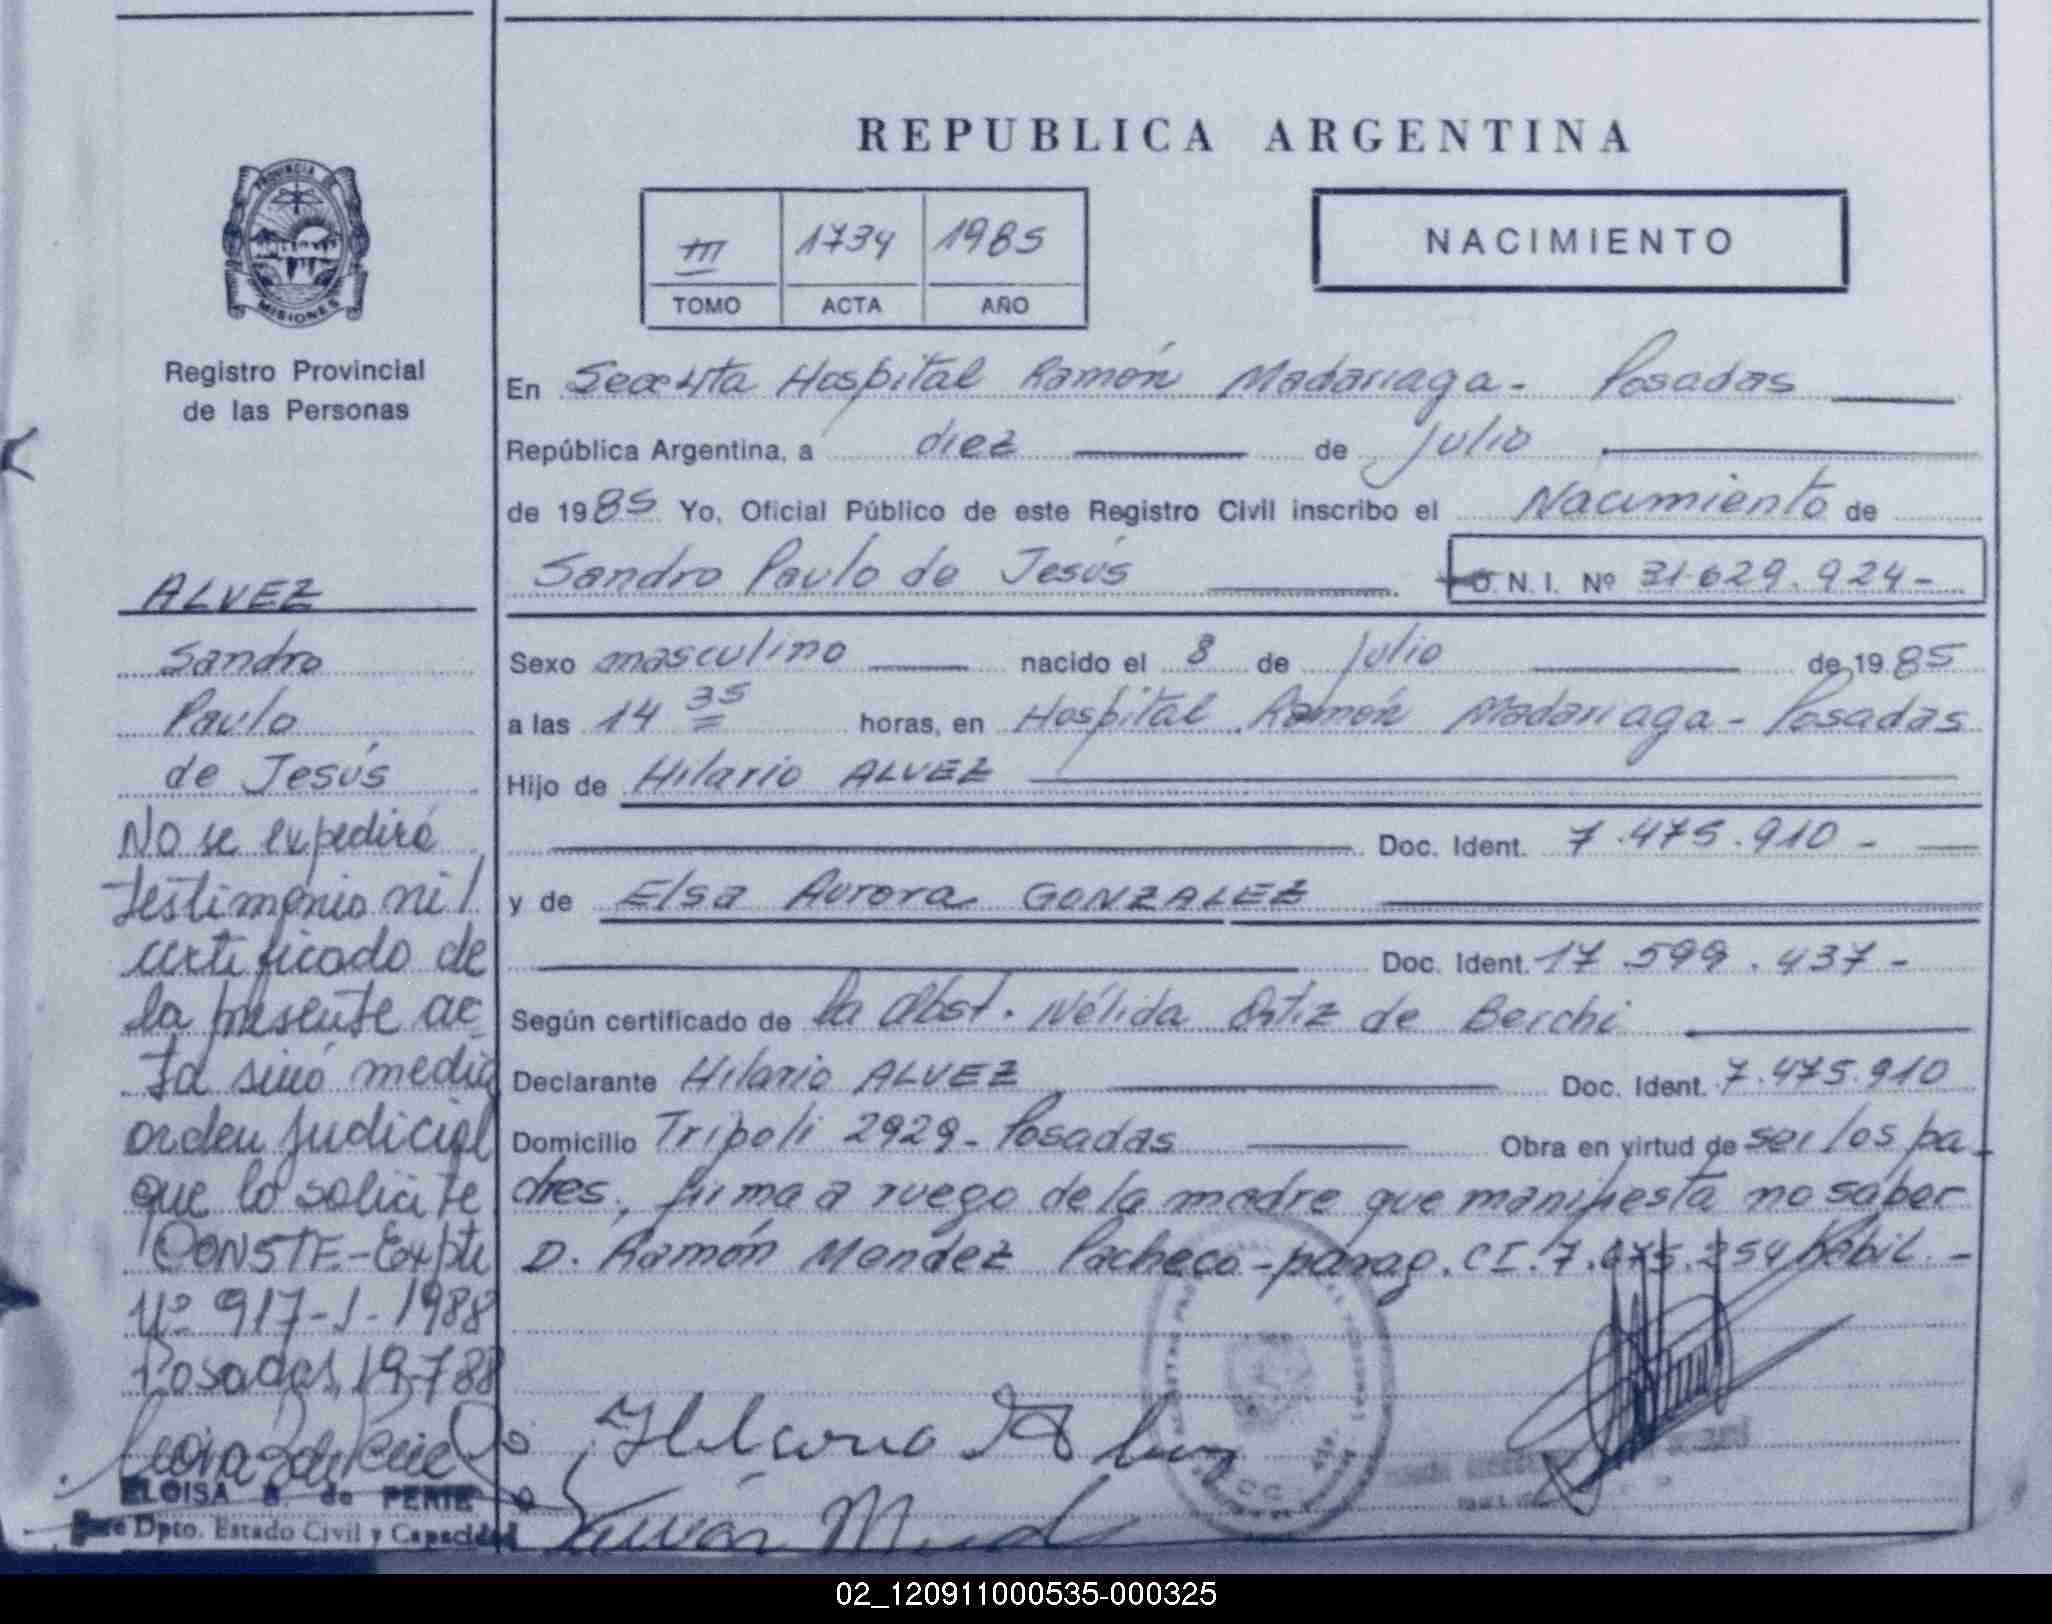 REPUBLICA ARGENTINA
PROVINCIA DE
MISIONES
Registro Provincial
de las Personas
III 1734 1985
TOMO ACTA AÑO
NACIMIENTO
En Hospital Ramón Madariaga - Posadas
República Argentina, a diez de Julio
de 1985 Yo, Oficial Público de este Registro Civil inscribo el Nacimiento de
Sandro Paulo de Jesús
D. N. I. Nº 31.629.924-
Sexo masculino nacido el 8 de Julio de 1985
a las 14 35 horas, en Hospital Ramón Madariaga - Posadas
Hijo de Hilario ALVEZ
Doc. Ident. 7.475.910 -
y de Elsa Aurora GONZALEZ
Doc. Ident. 17.599.437-
Según certificado de la Obst. Nélida Ortiz de Berchi
Declarante Hilario ALVEZ Doc. Ident. 7.475.910
Domicilio Tripoli 2929- Posadas Obra en virtud de ser los pa-
dres, firma a ruego de la madre que manifiesta no saber
D. Ramón Mendez Pacheco - parag. CI. 7.675.254 habil. -
ALVEZ
Sandro
Paulo
de Jesús
No se expedirá
testimonio ni
certificado de
la presente ac
ta sinó media
orden judicial
que lo solicite
CONSTE - Expte
Nº 917-J-1988
Posadas, 19-7-88
ELOISA B. de PERIE
Jefe Dpto. Estado Civil y Capacidad
02_120911000535-000325